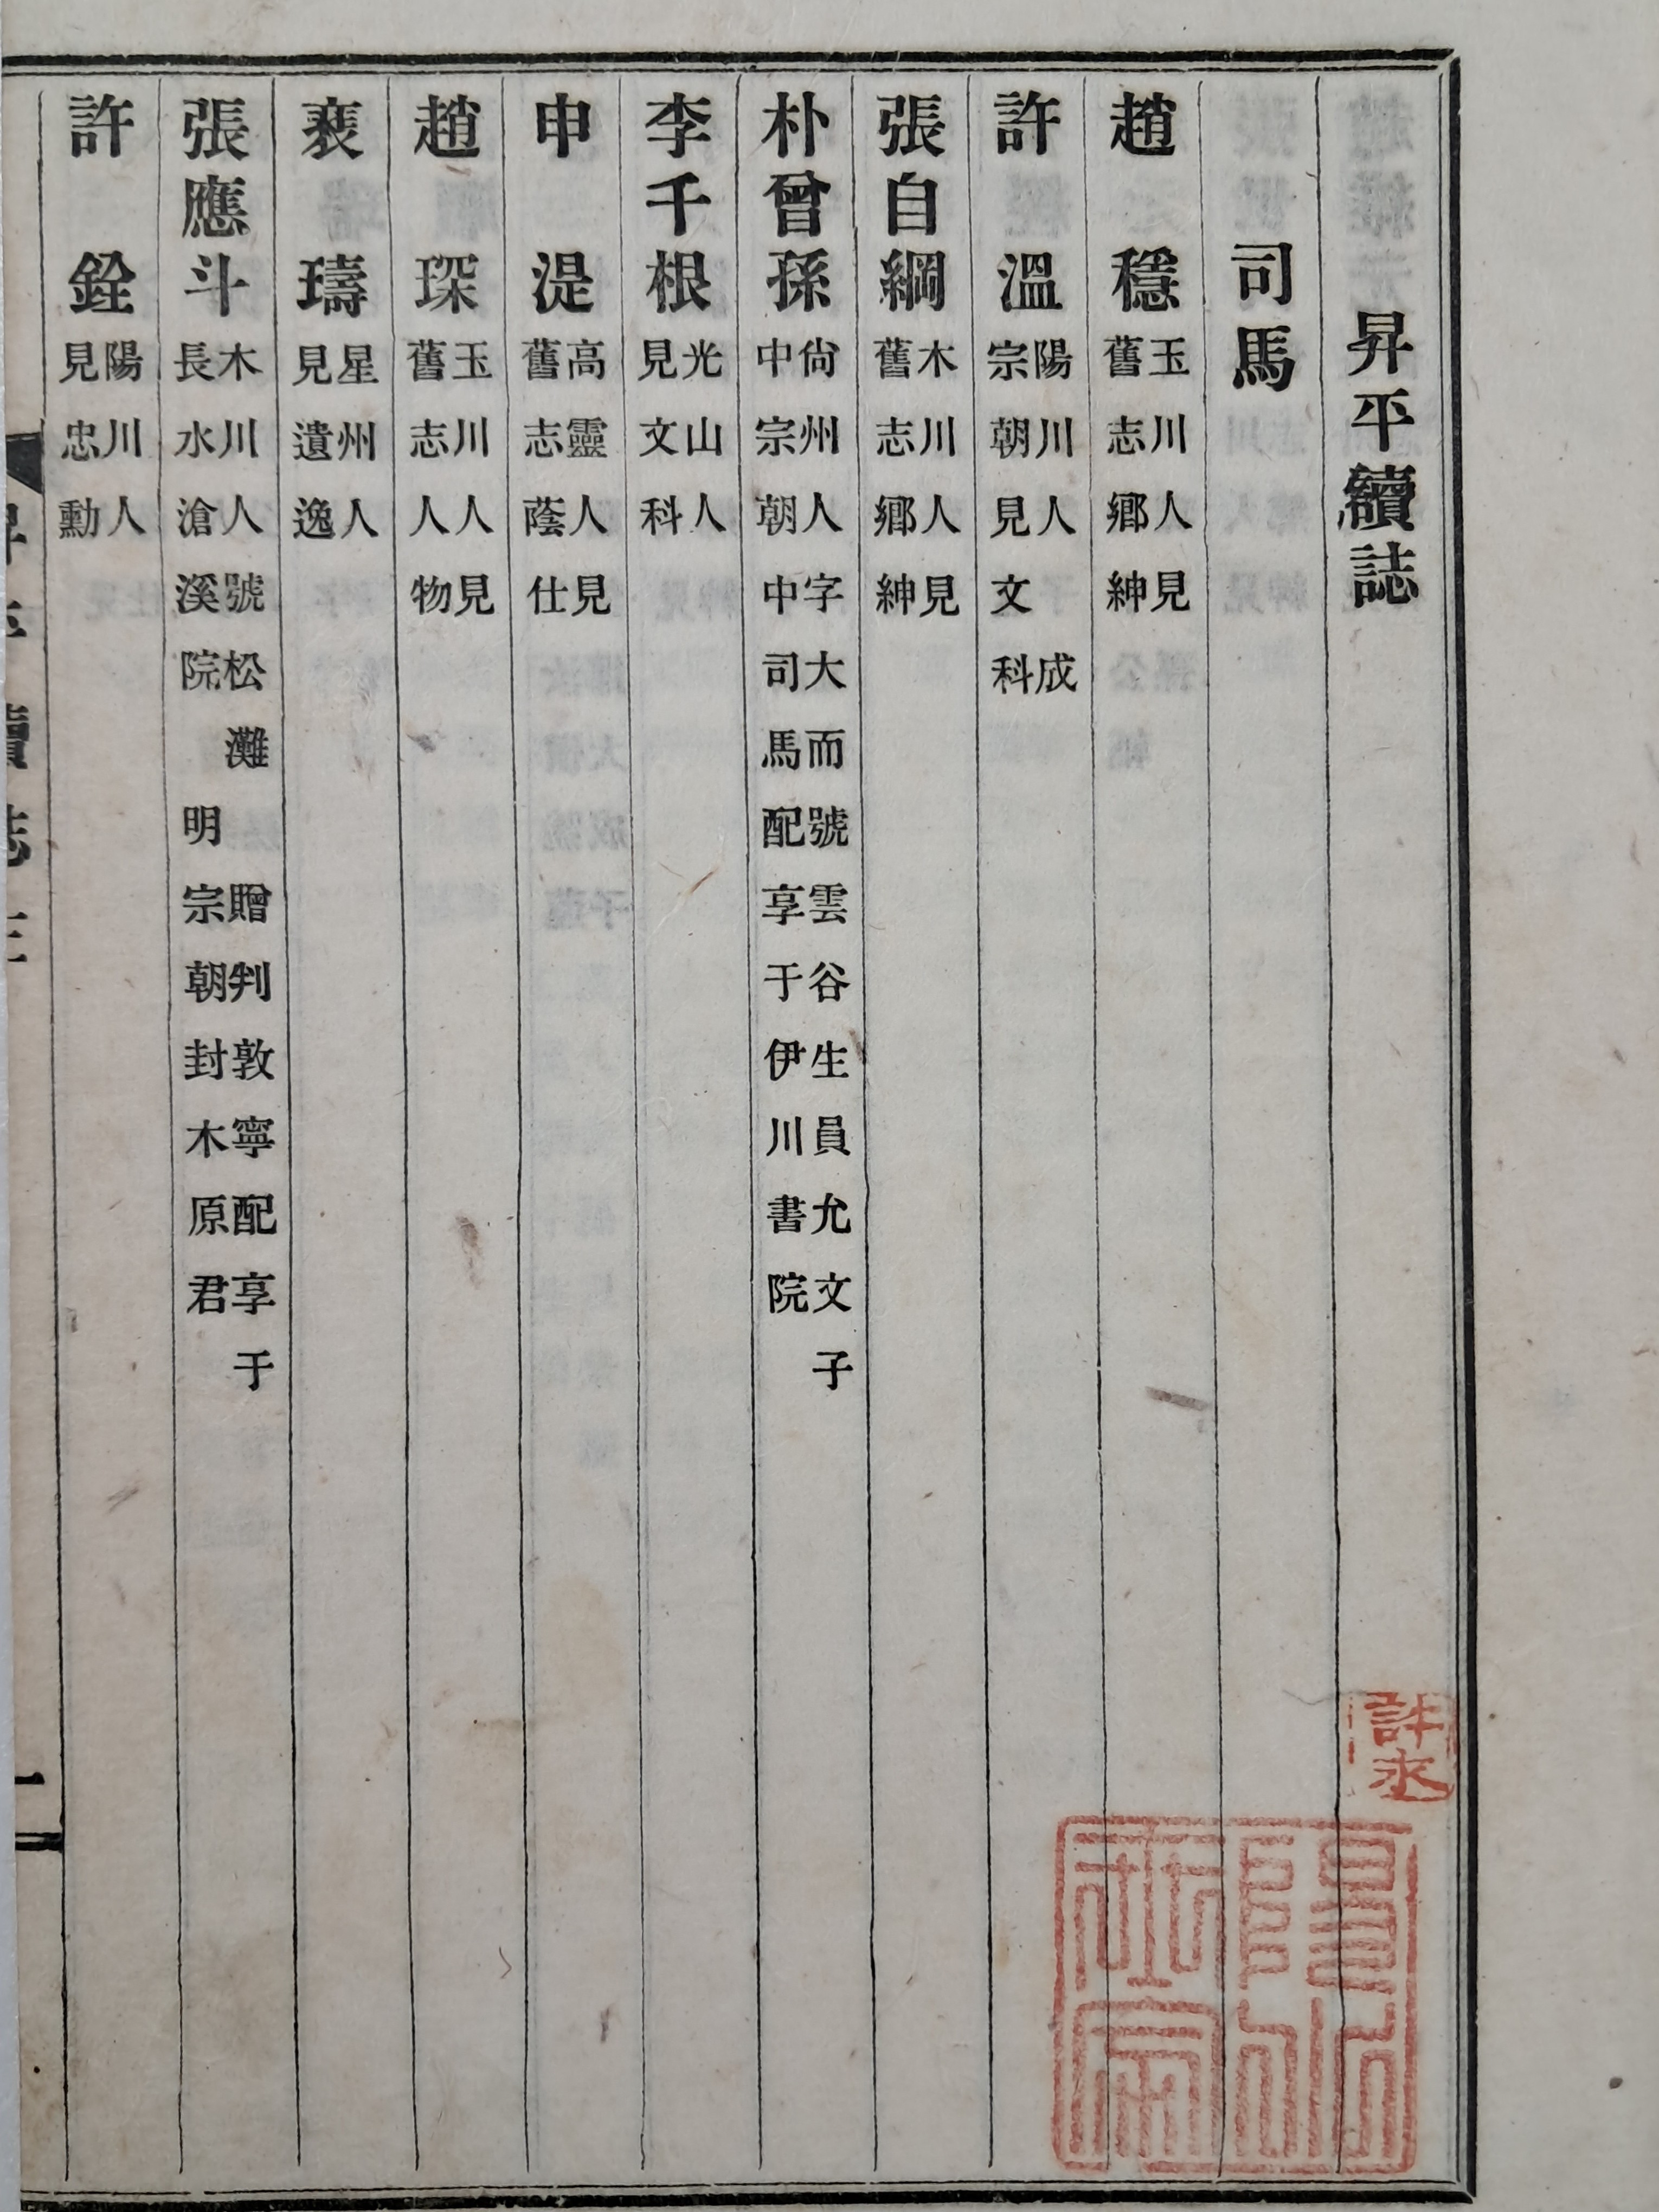 昇平續誌
司馬
趙穩 玉川人見
舊志鄉紳
許溫 陽川人 成
宗朝見文科
張自綱 木川人見
舊志鄉紳
朴曾孫 尙州人字大而號雲谷生員允文子
中宗朝中司馬配享于伊川書院
李千根 光山人
見文科
申湜 高靈人見
舊志蔭仕
趙琛 玉川人見
舊志人物
裵璹 星州人
見遺逸
張應斗 木川人號松灘 贈判敦寧配享于
長水滄溪院 明宗朝封木原君
許銓 陽川人
見忠勳
許永